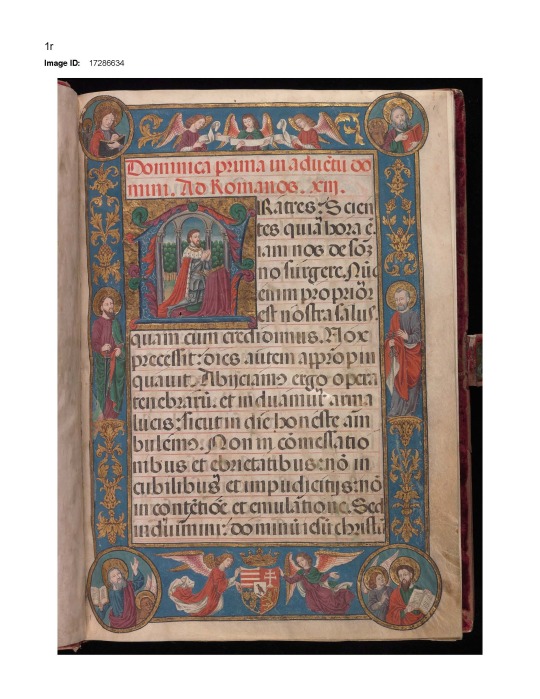 1r
Image ID: 17286634
Dominica prima in aduētu do
mini. Ad Romanos. xiij.
FRatres: Scien
tes quia hora ē
iam nos de sōn
no surgere. Nūc
enim propriōr
est nostra salus.
quam cum credidimus. Nox
precessit: dies autem appropin
quauit. Abijciam⁹ ergo opera
tenebrarū. et induamur arma
lucis: sicut in die honeste am
bulem⁹. Non in cōmessatio
nibus et ebrietatibus: nō in
cubilibus et impudicitijs: nō
in contētiōe et emulatione. Sed
induimini: dominū iesū christū